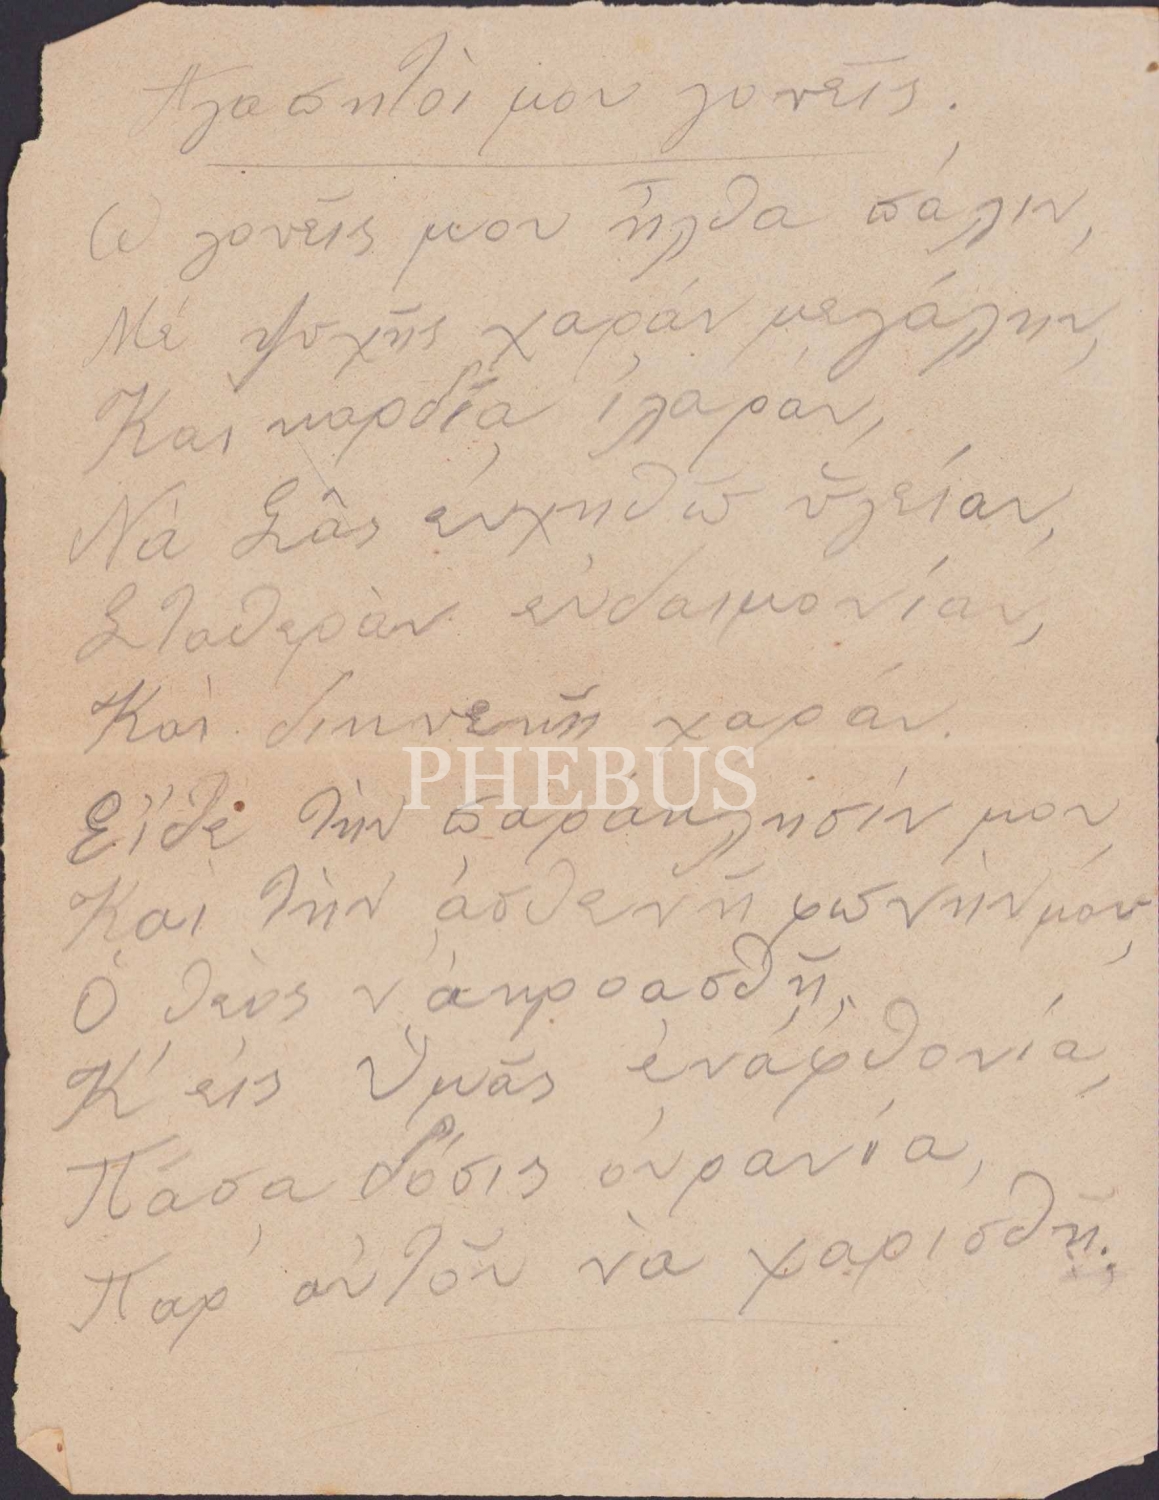 Ἀγαπητοί μου γονεῖς.
Ὦ γονεῖς μου ἦλθα πάλιν,
Μέ ψυχῆς χαράν μεγάλην,
Καί καρδίᾳ ἱλαράν,
Νά Σᾶς εὐχηθῶ ὑγείαν,
Σταθεράν εὐδαιμονίαν,
Καί διηνεκῆ χαράν.
PHEBUS
Εἴθε τήν παράκλησίν μου,
Καί τήν ἀσθενῆ φωνήν μου,
Ὁ θεός ν' ἀκροασθῇ,
Κ' εἰς Ὑμᾶς ἐν ἀφθονίᾳ,
Πᾶσα δόσις οὐρανία,
Παρ' αὐτοῦ νὰ χαρισθῇ.